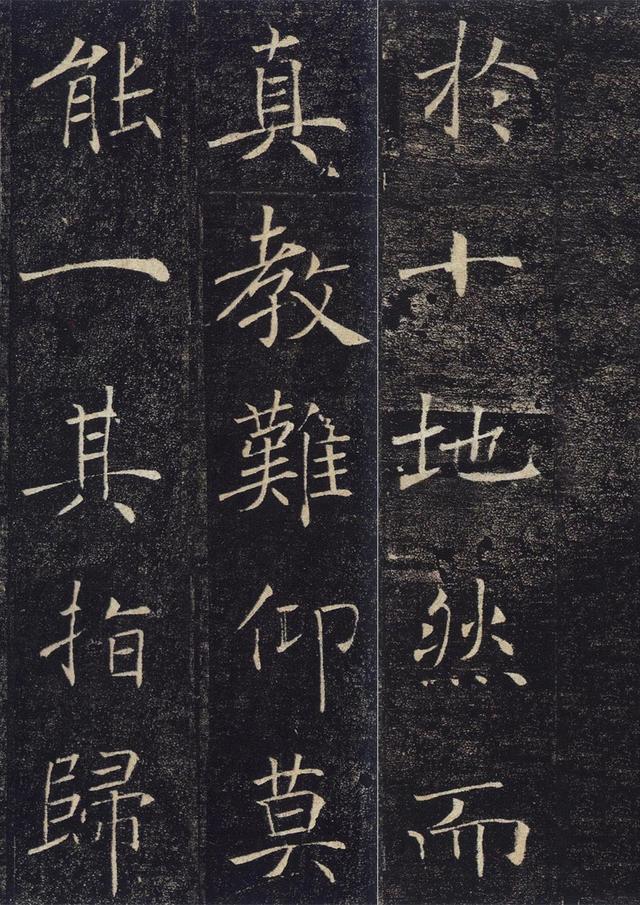 於十地然而
真教難仰莫
能一其指歸